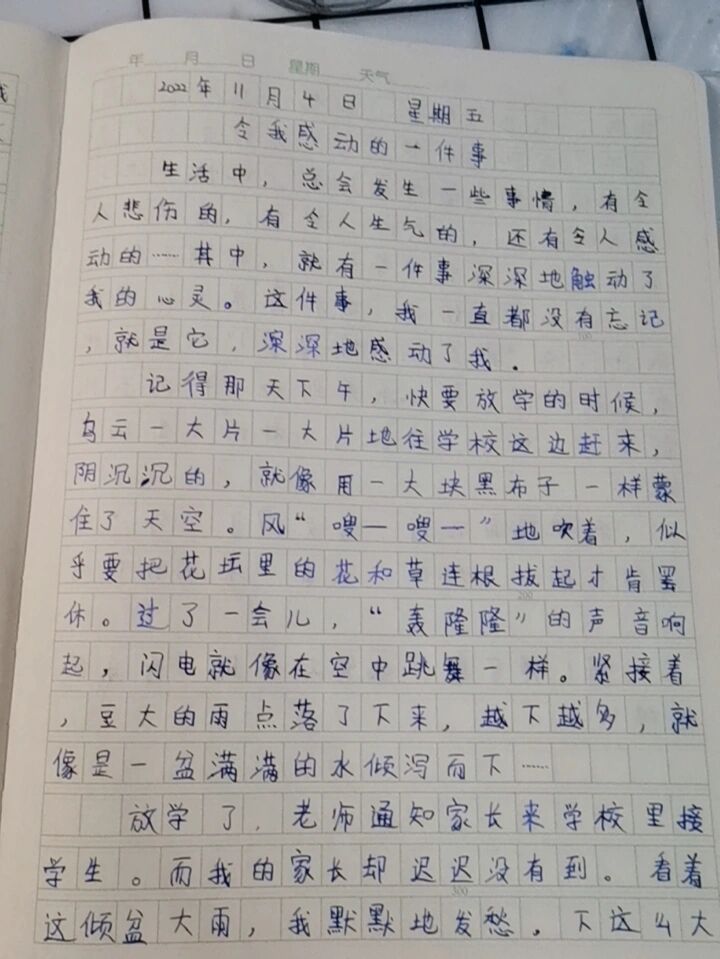 年 月 日 星期 天气
2022年11月4日 星期五
令我感动的一件事
生活中，总会发生一些事情，有令
人悲伤的，有令人生气的，还有令人感
动的……其中，就有一件事深深地触动了
我的心灵。这件事，我一直都没有忘记
，就是它，深深地感动了我。
100
记得那天下午，快要放学的时候，
乌云一大片一大片地往学校这边赶来，
阴沉沉的，就像用一大块黑布子一样蒙
住了天空。风“嗖—嗖—”地吹着，似
乎要把花坛里的花和草连根拔起才肯罢
200
休。过了一会儿，“轰隆隆”的声音响
起，闪电就像在空中跳舞一样。紧接着
，豆大的雨点落了下来，越下越多，就
像是一盆满满的水倾泻而下……
放学了，老师通知家长来学校里接
学生。而我的家长却迟迟没有到。看着
300
这倾盆大雨，我默默地发愁。下这么大